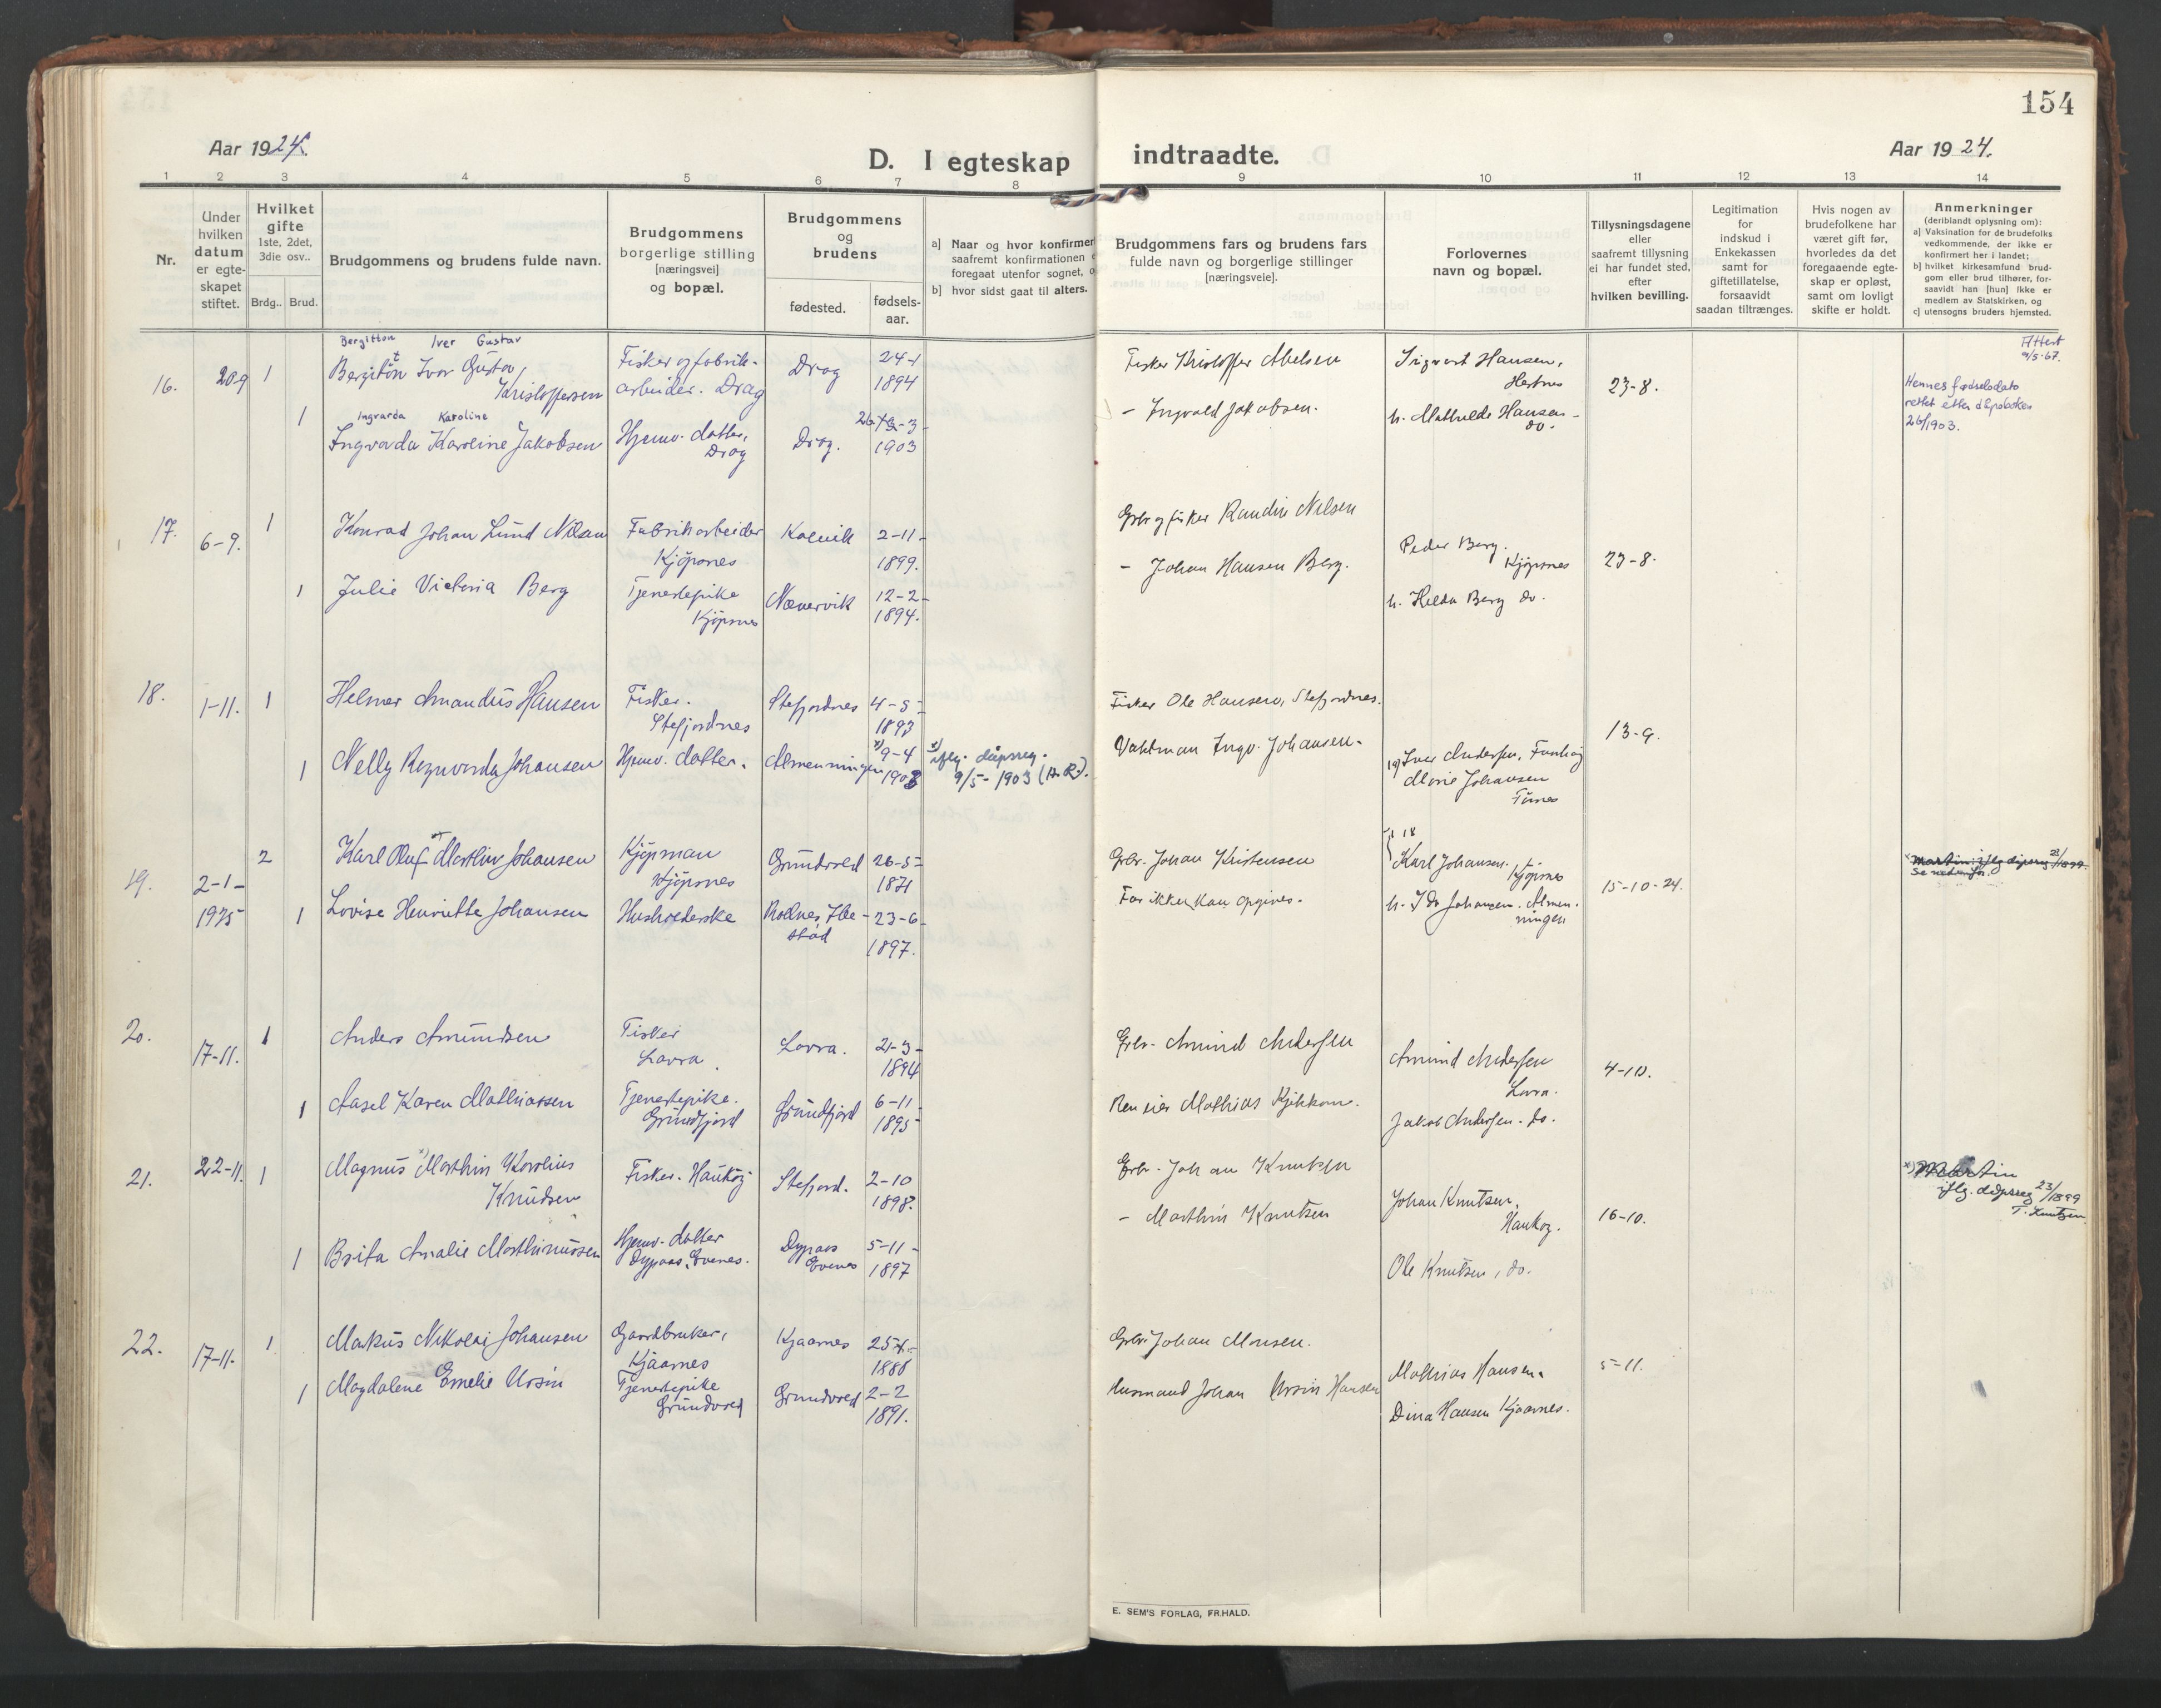 154
Aar 1924.
D. I egteskap indtraadte.
Aar 1924.
1 2 3 4 5 6 7 8 9 10 11 12 13 14
Nr.
Under hvilken datum er egte-skapet stiftet.
Hvilket gifte 1ste, 2det, 3die osv..
Brdg.. Brud.
Brudgommens og brudens fulde navn.
Brudgommens borgerlige stilling [næringsvei] og bopæl.
Brudgommens og brudens
fødested.
fødsels-aar.
a] Naar og hvor konfirmer
saafremt konfirmationen
foregaat utenfor sognet, o
b] hvor sidst gaat til alters.
Brudgommens fars og brudens fars
fulde navn og borgerlige stillinger
[næringsveie].
Forlovernes
navn og bopæl.
Tillysningsdagene
eller
saafremt tillysning
ei har fundet sted,
efter
hvilken bevilling.
Legitimation
for
indskud i
Enkekassen
samt for
giftetillatelse,
forsaavidt
saadan tiltrænges.
Hvis nogen av
brudefolkene har
været gift før,
hvorledes da det
foregaaende egte-
skap er opløst,
samt om lovligt
skifte er holdt.
Anmerkninger
(deriblandt oplysning om):
a] Vaksination for de brudefolks
vedkommende, der ikke er
konfirmert her i landet;
b] hvilket kirkesamfund brud-
gom eller brud tilhører, for-
saavidt han [hun] ikke er
medlem av Statskirken, og
c] utensogns bruders hjemsted.
Bergitton Iver Gustav
16. 20-9 1 Bergiton Ivor Gustav, Kristoffersen
Fisker og fabrik-
arbeider. Drag
Drag
24-1
1894
Fisker Kristoffer Abelsen
Sigvart Hansen,
Hestnes
23-8.
Attest
9/5-67.
Hennes fødselsdato
rettet etter dåpsboken
26/1903.
Ingvarda Karoline
1 Ingvarda Karoline Jakobsen
Hjemv. datter,
Drag
Drag.
26 -3-
1903
- Ingvald Jakobsen.
h. Mathilde Hansen - do.
17. 6-9. 1 Konrad Johan Lund Nilsen
Fabrikarbeider
Kjöpsnes
Kalvik
2-11-
1899.
Grbr og fisker Randin Nilsen
Peder Berg.
Kjöpsnes
23-8.
1 Julie Victoria Berg
Tjenestepike
Kjöpsnes
Nævervik
12-2-
1894.
- Johan Hansen Berg.
h. Hilda Berg do.
18. 1-11. 1 Helmer Amandus Hansen
Fisker.
Stefjordnes
Stefjordnes
4-5-
1893
Fisker Ole Hansen, Stefjordnes.
13-9.
1 Nelly Regnvarda Johansen
Hjemv. datter.
Almenningen
x) 9-4
1903
x) iflg. dåpsreg.
9/5-1903 (H.R.).
Vaktman Ingv. Johansen.
Iver Andersen,
Marie Johansen
19. 2-1-1925 2 Karl Oluf Marthin Johansen
Kjöpman
Kjöpsnes
Grundvred
26-5-
1871
Grbr. Johan Kristensen
Karl Johansen. Kjöpsnes
15-10-24.
Martin: iflg dåpsreg 23/1899
Se nedenfor.
1 Lovise Henriette Johansen
Husholderske
Rollnes, Ibe-
stad
23-6-
1897.
Far ikke kan opgives.
h. Ida Johansen. Almen-
ningen
20. 17-11. 1 Anders Amundsen
Fisker
Lavra.
Lovra.
21-3-
1894
Grbr. Amund Andersen
Amund Andersen
Lovra.
4-10.
1 Aasel Karen Mathiassen
Tjenestepike.
Grundfjord
Grundfjord
6-11
1895-
Ren eier Mathias Kjikkom.
Jakob Andersen. do.
21. 22-11. 1 Magnus x) Marthin Karolius
Knudsen
Fisker. Haukøj
Stefjord.
2-10
1898.
Grbr. Johan Knutsen
Johan Knutsen,
Haukøy.
16-10.
x) Martin
iflg. dåpsreg 23/1899
T. Knutzen.
1 Brita Amalie Marthinussen
Hjemv. datter
Dypaas, Evenes.
Dypaas
Evenes
5-11-
1897
- Marthin Knutsen
Ole Knutsen, do.
22. 17-11. 1 Makus Nikolai Johansen
Gaardbruker,
Kjaarnes
Kjaarnes
25-
1888
Grbr. Johan Monsen.
Mathias Hansen.
5-11.
1 Magdalene Emelie Ursin
Tjenestepike
Grundvred
Grundvred
2-2
1891.
Husmand Johan Ursin Hansen
Dina Hansen Kjaarnes.
E. SEM'S FORLAG, FR.HALD.